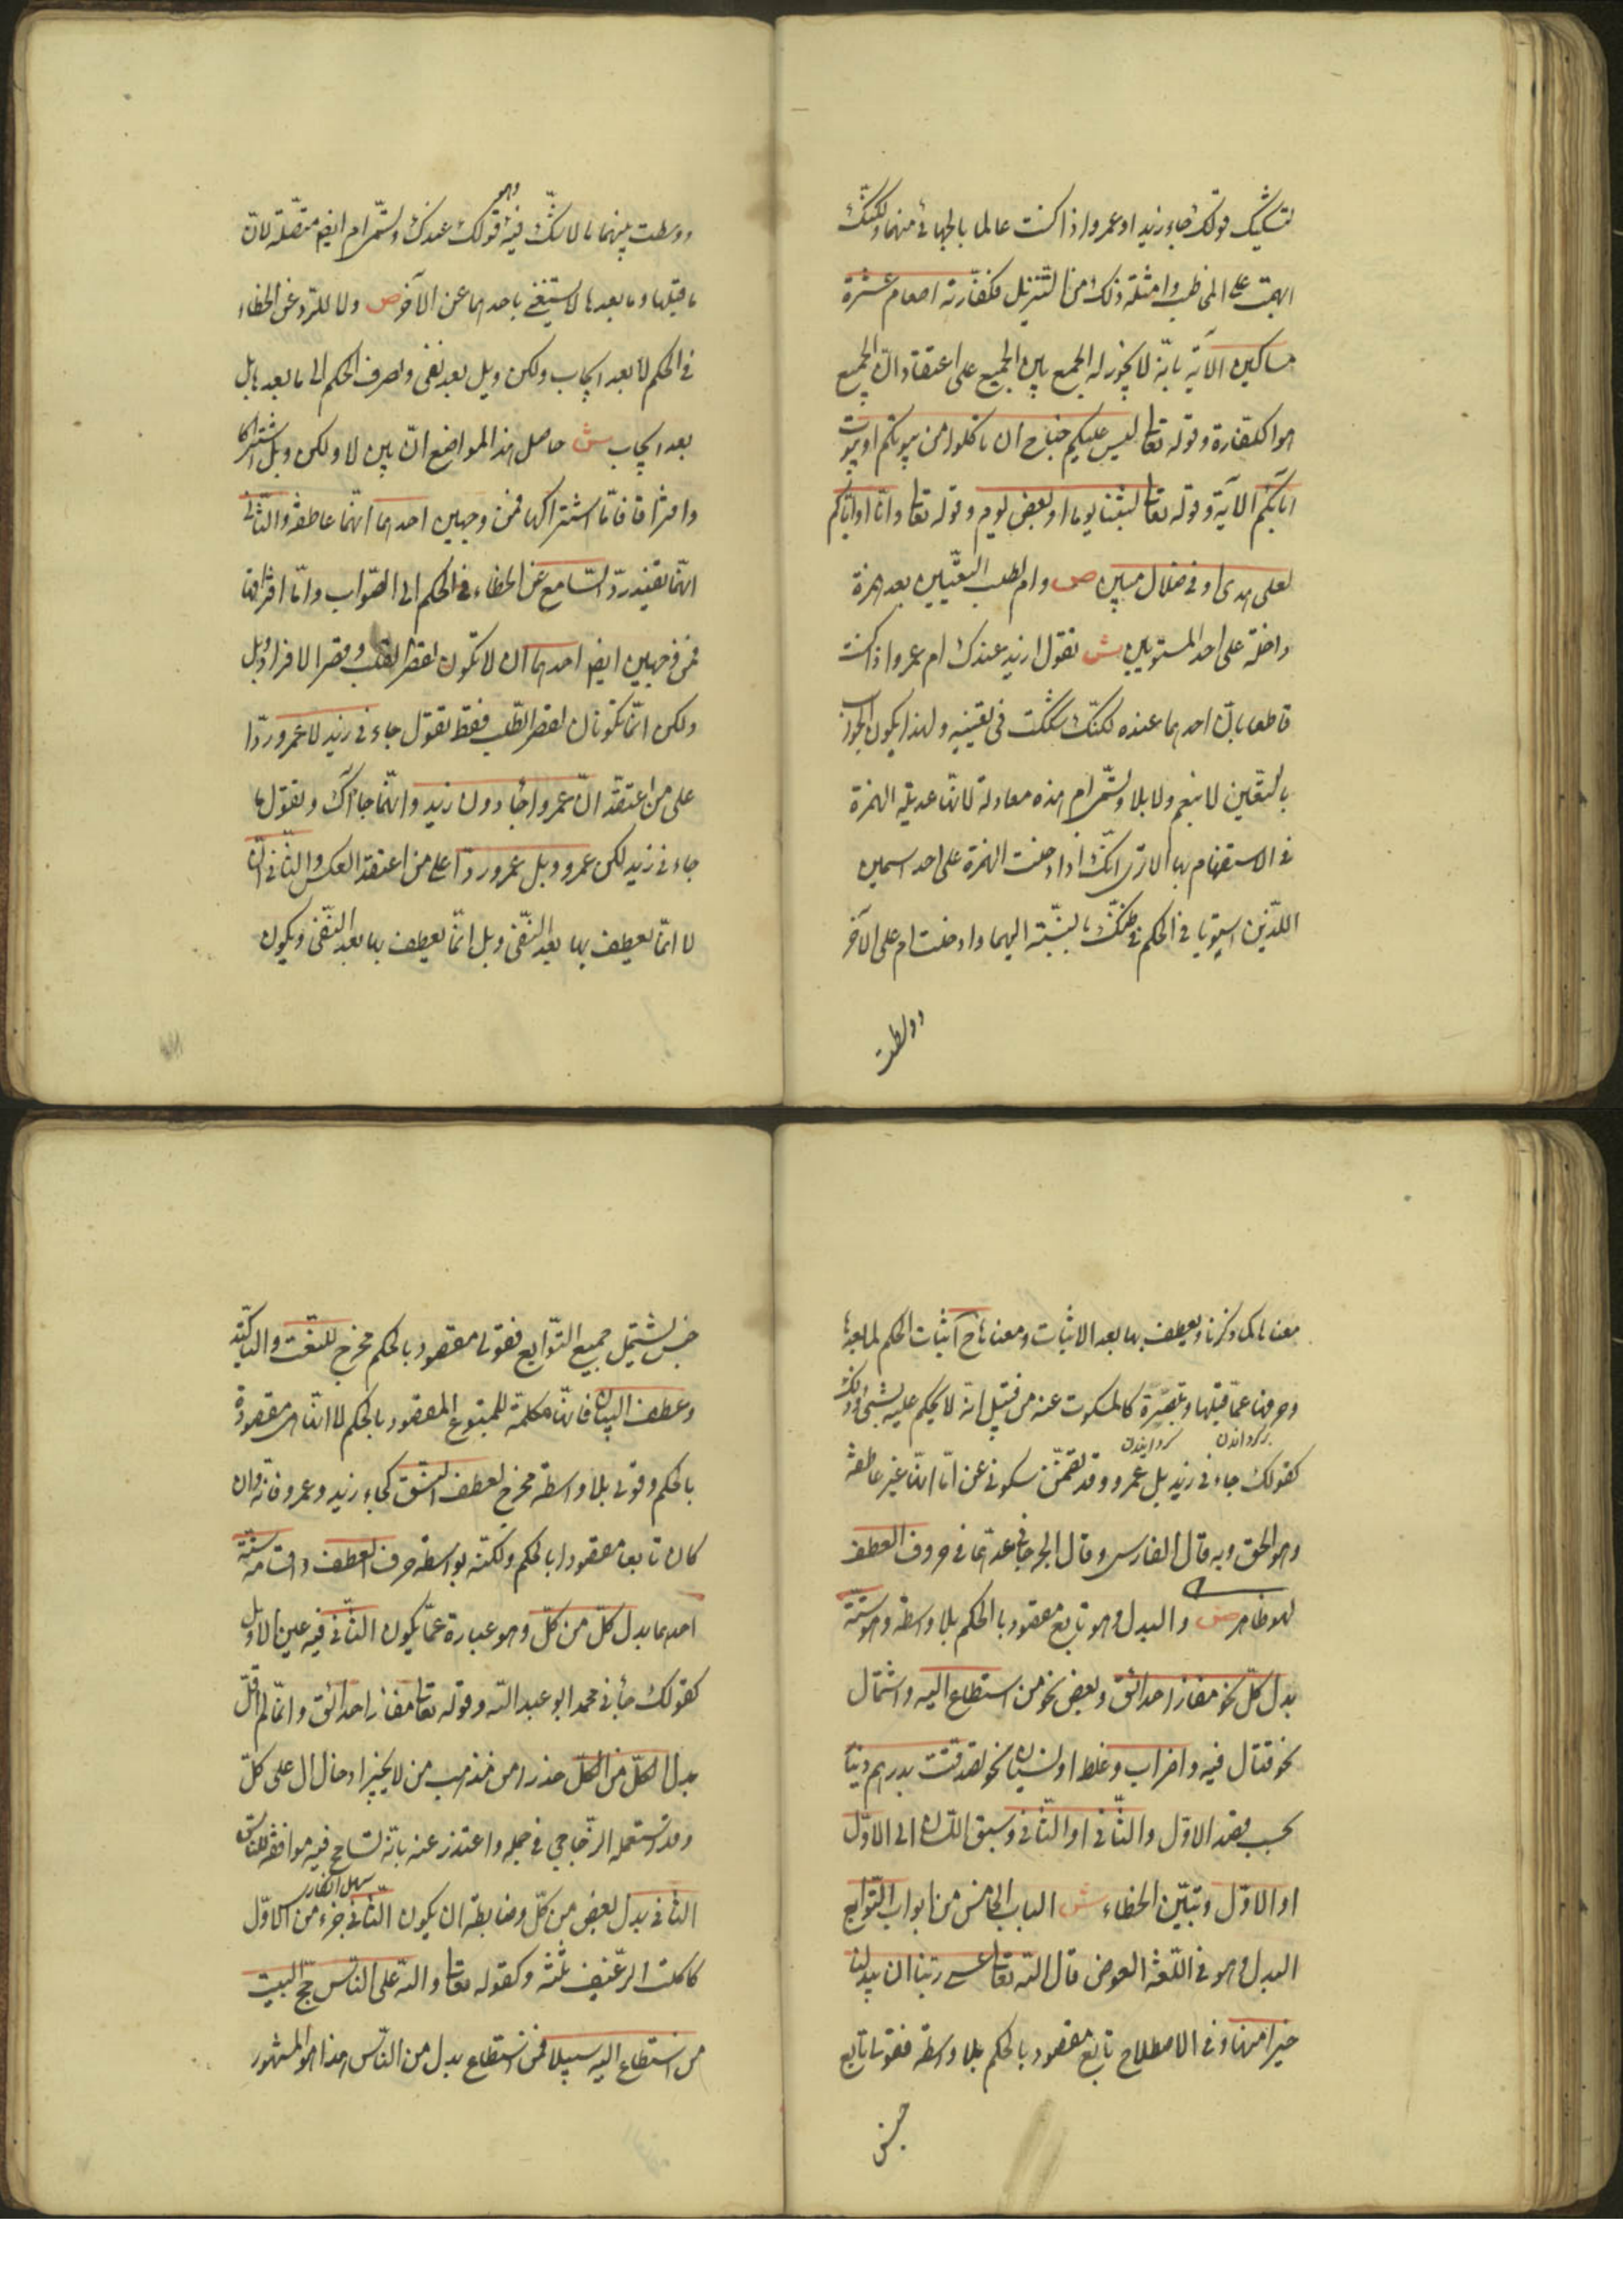 لتشكيك قولك جاء زيد او عمرو اذا كنت عالما بالجائى منهما ولكنك
ابهمت على المخاطب وامثلة ذلك من التنزيل فكفارته اطعام عشرة
مساكين الآية بانه لا يجوز له الجمع بين الجميع على اعتقاد ان الجميع
هو الكفارة وقوله تعا ليس عليكم جناح ان تاكلوا من بيوتكم او بيوت
آبائكم الآية وقوله تعا لبثنا يوما او بعض يوم وقوله تعا وانا او اياكم
لعلى هدى او فى ضلال مبين ص وام لطلب التعيين بعد همزة
داخلة على احد المستويين ش تقول ازيد عندك ام عمرو اذا كنت
قاطعا بان احدهما عنده لكنك شككت فى تعيينه ولهذا يكون الجواب
بالتعيين لا بنعم ولا بلا وتسمى ام هذه معادلة لانها عديلة الهمزة
فى الاستفهام بها الا ترى انك اذا ادخلت الهمزة على احد اسمين
اللذين استويا فى الحكم فى ظنك بالنسبة اليهما وادخلت ام على الآخر
ووسطت
ووسطت بينهما ما لا تشك فيه وهو قولك عندك وتسمى ام ايضا متصلة لان
ما قبلها وما بعدها لا يستغنى باحدهما عن الآخر ص ولا للرد عن الخطاء
فى الحكم لا بعد ايجاب ولكن وبل بعد نفى ولصرف الحكم الى ما بعدها بل
بعد ايجاب ش حاصل هذا المواضع ان بين لا ولكن وبل اشتراكا
وافتراقا فاما اشتراكها فمن وجهين احدهما انها عاطفة والثانى
انها تفيد رد السامع عن الخطاء فى الحكم الى الصواب واما افتراقها
فمن وجهين ايضا احدهما ان لا تكون لقصر القلب وقصر الافراد وبل
ولكن انما تكونان لقصر القلب فقط تقول جاءنى زيد لا عمرو ردّا
على من اعتقد ان عمروا جاء دون زيد وانهما جاآك وتقول ما
جاءنى زيد لكن عمرو وبل عمرو ردّا على من اعتقد العكس والثانى ان
لا انما يعطف بها بعد النفى وبل انما يعطف بها بعد النفى ويكون
معناها كما ذكرنا ويعطف بها بعد الاثبات ومعناها ح اثبات الحكم لما بعدها
وصرفها عما قبلها وتصيره كالمسكوت عنه من قبيل انه لا يحكم عليه بشئ وذلك
كقولك جاءنى زيد بل عمرو وقد تضمن سكوتى عن امّا انها غير عاطفة
وهو الحق وبه قال الفارسى وقال الجرجانى عدها فى حروف العطف
سهو ظاهر ص والبدل وهو تابع مقصود بالحكم بلا واسطة وهو ستة
بدل كل نحو مفازا حدائق وبعض نحو من استطاع اليه واشتمال
نحو قتال فيه واضراب وغلط او نسيان نحو تصدقت بدرهم دينار
بحسب قصد الاول والثانى او الثانى وسبق اللسان الى الاول
او الاول وتبين الخطاء ش الباب الخامس من ابواب التوابع
البدل وهو فى اللغة العوض قال الله تعا عسى ربنا ان يبدلنا
خيرا منها وفى الاصطلاح تابع مقصود بالحكم بلا واسطة فقولنا تابع
جنس
جنس يشتمل جميع التوابع فقولى مقصود بالحكم مخرج للنعت والتاكيد
وعطف البيان فانها مكملة للمتبوع المقصود بالحكم لا انها هى مقصودة
بالحكم وقولى بلا واسطة مخرج لعطف النسق كجاء زيد وعمرو فانه وان
كان تابعا مقصودا بالحكم ولكنه بواسطة حرف العطف واقسامه ستة
احدها بدل كل من كل وهو عبارة عما يكون الثانى فيه عين الاول
كقولك جاءنى محمد ابو عبد الله وقوله تعا مفازا حدائق وانما لم اقل
بدل الكل من الكل حذرا من مذهب من لا يجيز ادخال ال على كل
وقد استعمله الزجاجى فى جمله واعتذر عنه بانه تسامح فيه موافقة للناس
الثانى بدل بعض من كل وضابطه ان يكون الثانى جزء من الاول
كاكلت الرغيف ثلثه وكقوله تعا ولله على الناس حج البيت
من استطاع اليه سبيلا فمن استطاع بدل من الناس هذا هو المشهور